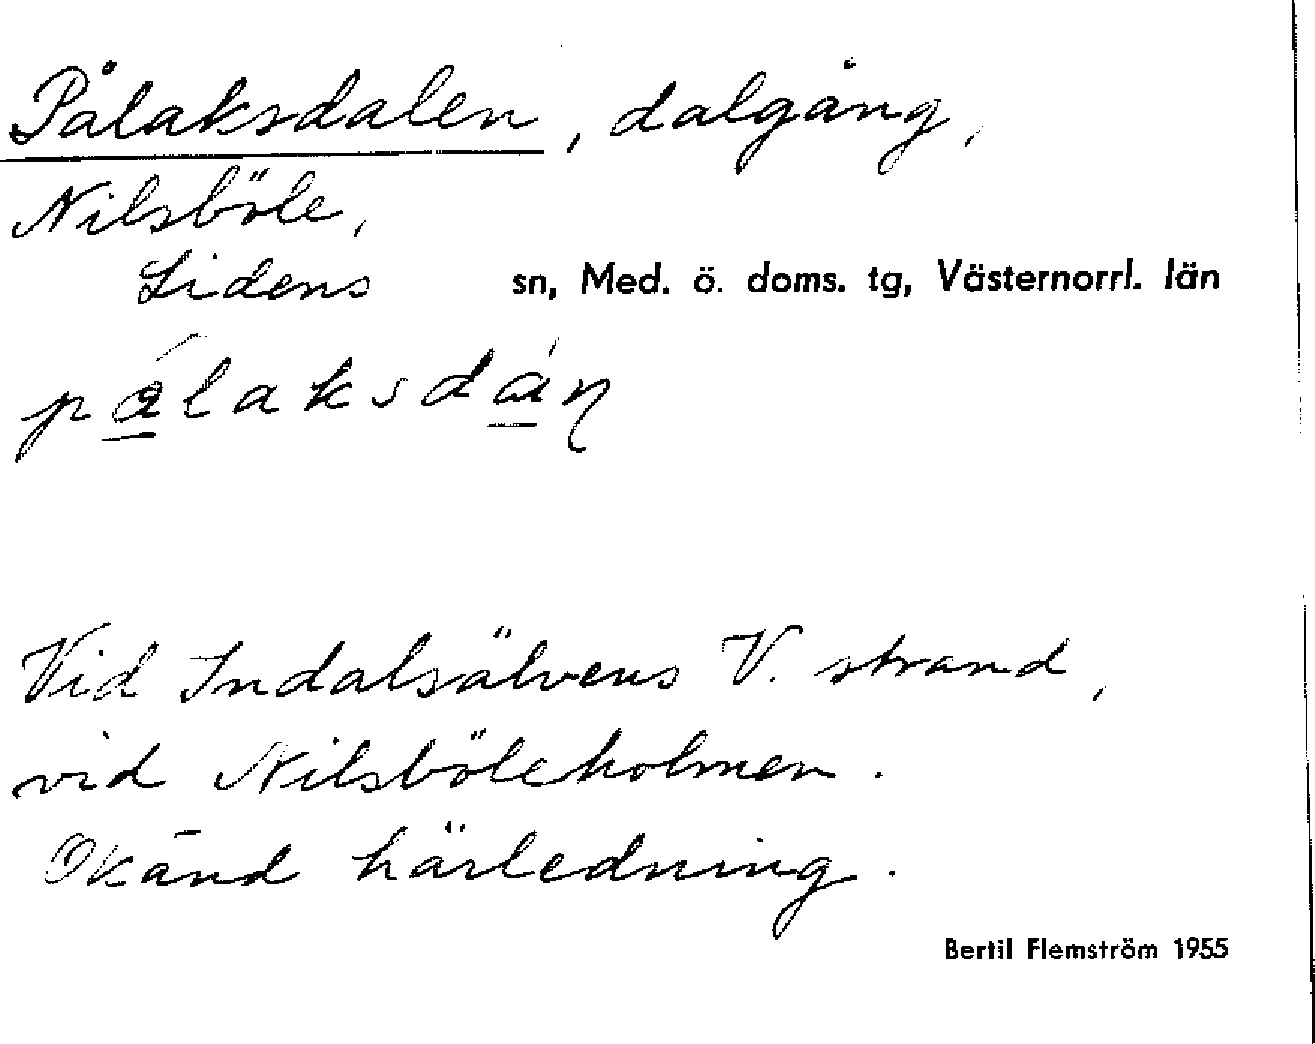 Pålaksdalen, dalgång,
Nilsböle,
Lidens sn, Med. ö. doms. tg, Västernorrl. län
Vid Indalsälvens V. strand,
vid Nilsböleholmen.
Okänd härledning.
Bertil Flemström 1955